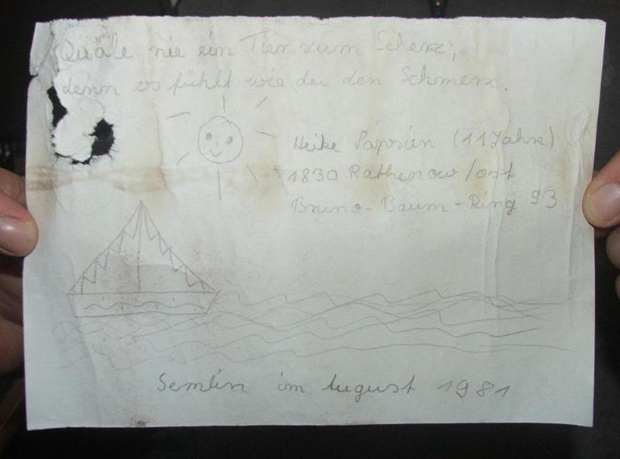 Quäle nie ein Tier zum Scherz,
denn es fühlt wie du den Schmerz.
Heike Saposien (11 Jahre)
1830 Rathenow/ost
Bruno-Baum-Ring 93
Semlin im August 1981